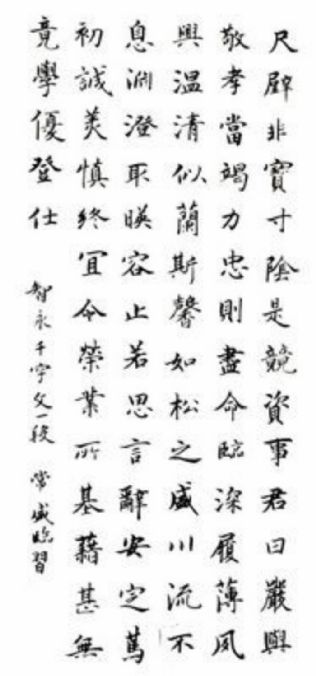 尺璧非寶寸陰是競資事君曰嚴與
敬孝當竭力忠則盡命臨深履薄夙
興温清似蘭斯馨如松之盛川流不
息淵澄取暎容止若思言辭安定篤
初誠美慎終宜令榮業所基藉甚無
竟學優登仕
智永千字文一段 常盛臨習